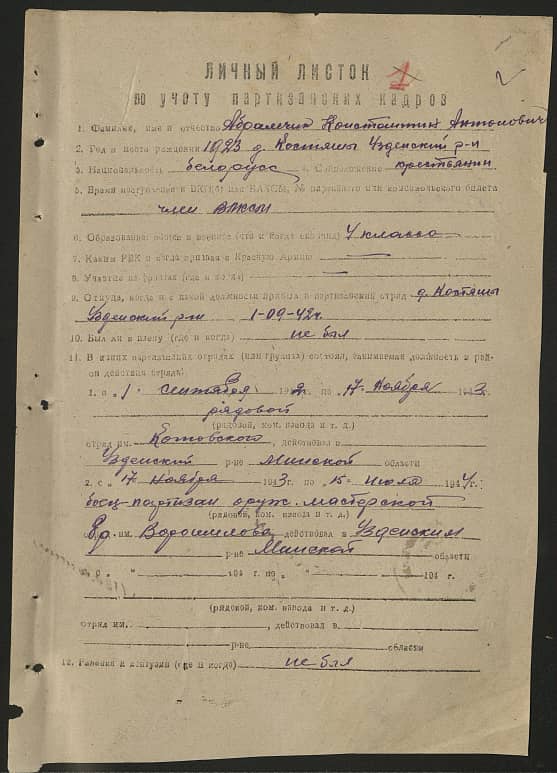 ЛИЧНЫЙ ЛИСТОК 1
по учету партизанских кадров
1. Фамилия, имя и отчество Абрамчик Константин Антонович
2. Год и место рождения 1923 д. Костяшы Узденский р-н
3. Национальность белорусс 4. С. положение крестьянин
5. Время вступления в ВКП(б) или ВЛКСМ, № партийного или комсомольского билета
член ВЛКСМ
6. Образование общее и военное (что и когда окончил) 4 класса
7. Каким РВК и когда призван в Красную Армию —
8. Участие на фронтах (где и когда) —
9. Откуда, когда и с какой должности прибыл в партизанский отряд д. Костяшы
Узденский р-н 1-09-42г.
10. Был ли в плену (где и когда) не был
11. В каких партизанских отрядах (или группах) состоял, занимаемая должность и рай-
он действия отряда:
1. с "1" сентября 1942г. по "17" ноября 1943г.
рядовой
(рядовой, ком. взвода и т. д.)
отряд им. Котовского, действовал в
Узденский р-не Минской области
2. с "17" ноября 1943 г. по "15" июля 1944 г.
боец-партизан оруж. мастерской
(рядовой, ком. взвода и т. д.)
им. Ворошилова действовал в Узденским
р-не Минской области
3. с " " 194 г. по " " 194 г.
(рядовой, ком. взвода и т. д.)
отряд им. , действовал в
р-не области
12. Ранения и контузии (где и когда) не был